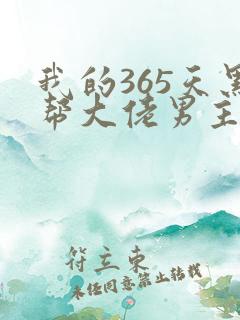 我的365天黑
帮大佬男主
符立东
未经同意禁止转载